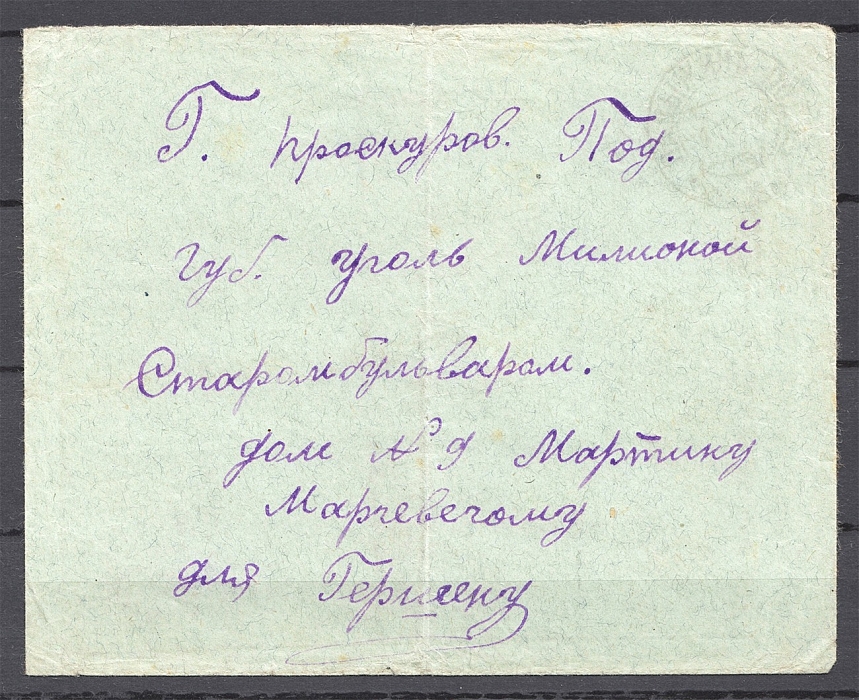 Г. Проскуров. Под.
губ. уголь Милионой
Старом бульваром.
дом № 9 Мартину
Марчевечому
для Гершену